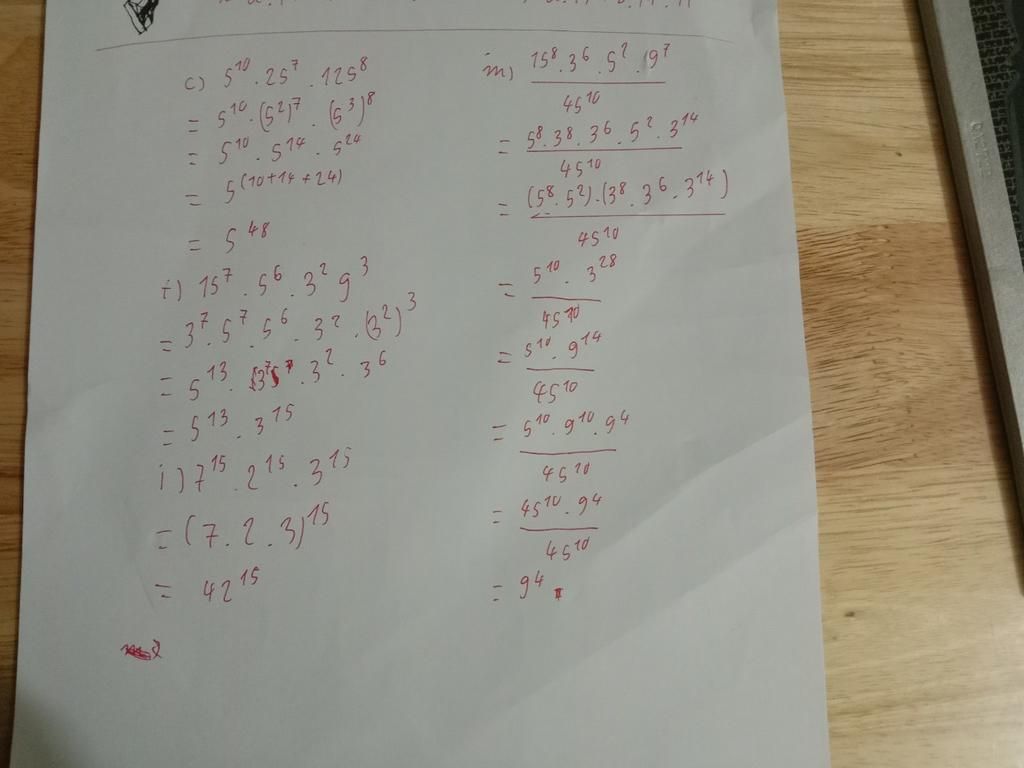 c) 5^10 . 25^7 . 125^8
= 5^10 . (5^2)^7 . (5^3)^8
= 5^10 . 5^14 . 5^24
= 5^(10+14+24)
= 5^48
f) 15^7 . 5^6 . 3^2 9^3
= 3^7 . 5^7 . 5^6 . 3^2 . (3^2)^3
= 5^13 . 3^7 . 3^2 . 3^6
= 5^13 . 3^15
i) 7^15 . 2^15 . 3^15
= (7 . 2 . 3)^15
= 42^15
m) 15^8 . 3^6 . 5^2 . 9^7
45^10
= 5^8 . 3^8 . 3^6 . 5^2 . 3^14
45^10
= (5^8 . 5^2) . (3^8 . 3^6 . 3^14)
45^10
= 5^10 . 3^28
45^10
= 5^10 . 9^14
45^10
= 5^10 . 9^10 . 9^4
45^10
= 45^10 . 9^4
45^10
= 9^4 .